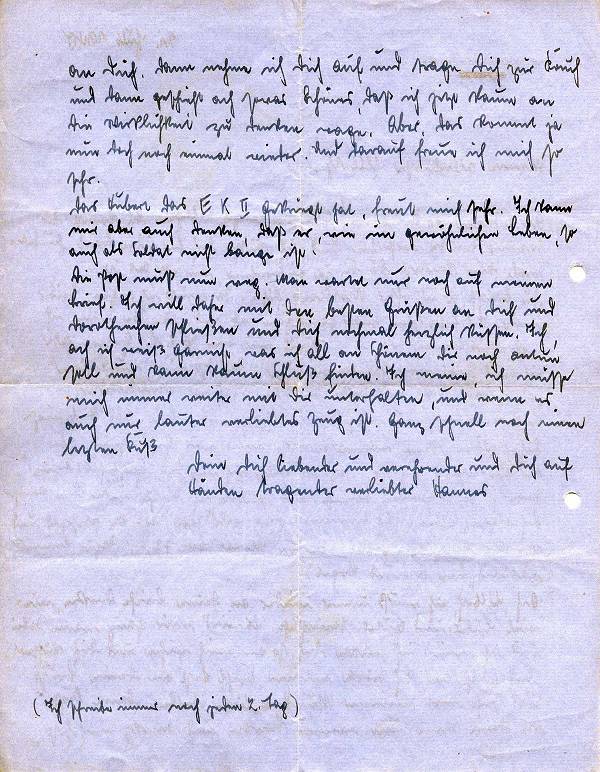 an Dich. Dann nehme ich Dich auf und trage Dich zur Couch
und dann geschieht ach sowas Schönes, daß ich jetzt kaum an
die Wirklichkeit zu denken wage. Aber, das kommt ja
nun doch noch einmal wieder. Und darauf freue ich mich so
sehr.
Das Hubert das E K II gekriegt hat, freut mich sehr. Ich kann
mir aber auch denken, daß er, wie im gewöhnlichen Leben, so
auch als Soldat nicht bange ist.
Die Post muß nun weg. Man wartet nur noch auf meinen
Brief. Ich will daher mit den besten Grüßen an Dich und
Dorothenchen schließen und Dich nochmal herzlich küssen. Ich,
ach ich weiß garnicht, was ich all an Schönem dir noch antun
soll und kann kaum Schluß finden. Ich meine, ich müsse
mich immer weiter mit Dir unterhalten, und wenn es
auch nur lauter verliebtes Zeug ist. Ganz schnell noch einen
letzten Kuß
Dein Dich liebender und verehrender und Dich auf
Händen tragender verliebter Hannes
(Ich schreibe immer noch jeden 2. Tag)